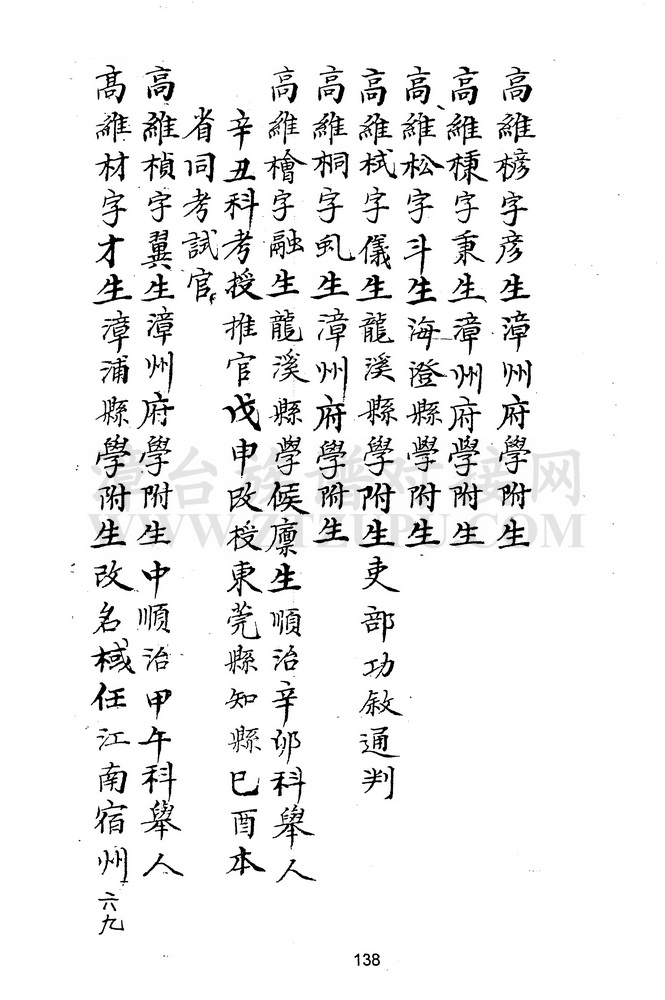 高維𣖔字彥生漳州府學附生
高維棟字秉生漳州府學附生
高維松字斗生海澄縣學附生
高維栻字儀生龍溪縣學附生吏部功敘通判
高維桐字虬生漳州府學附生
高維檜字融生龍溪縣學候廪生順治辛卯科舉人
辛丑科考授推官戊申改授東莞縣知縣已酉本
省同考試官
高維楨字翼生漳州府學附生中順治甲午科舉人
高維材字才生漳浦縣學附生改名棫任江南宿州
六九
138
漳台族谱对接网
WWW.ZTZUPU.COM